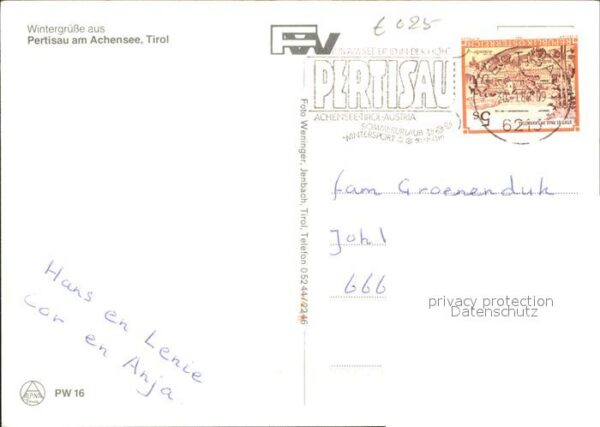 Wintergrüße aus
Pertisau am Achensee, Tirol
€ 025
PERTISAU
ACHENSEE-TIROL-AUSTRIA
SOMMERURLAUB
WINTERSPORT
5s
6213
Foto Weninger, Jenbach, Tirol, Telefon 05244/2246
fam Groenenduk
Johl
666
privacy protection
Datenschutz
Hans en Lenie
Cor en Anja.
PW 16